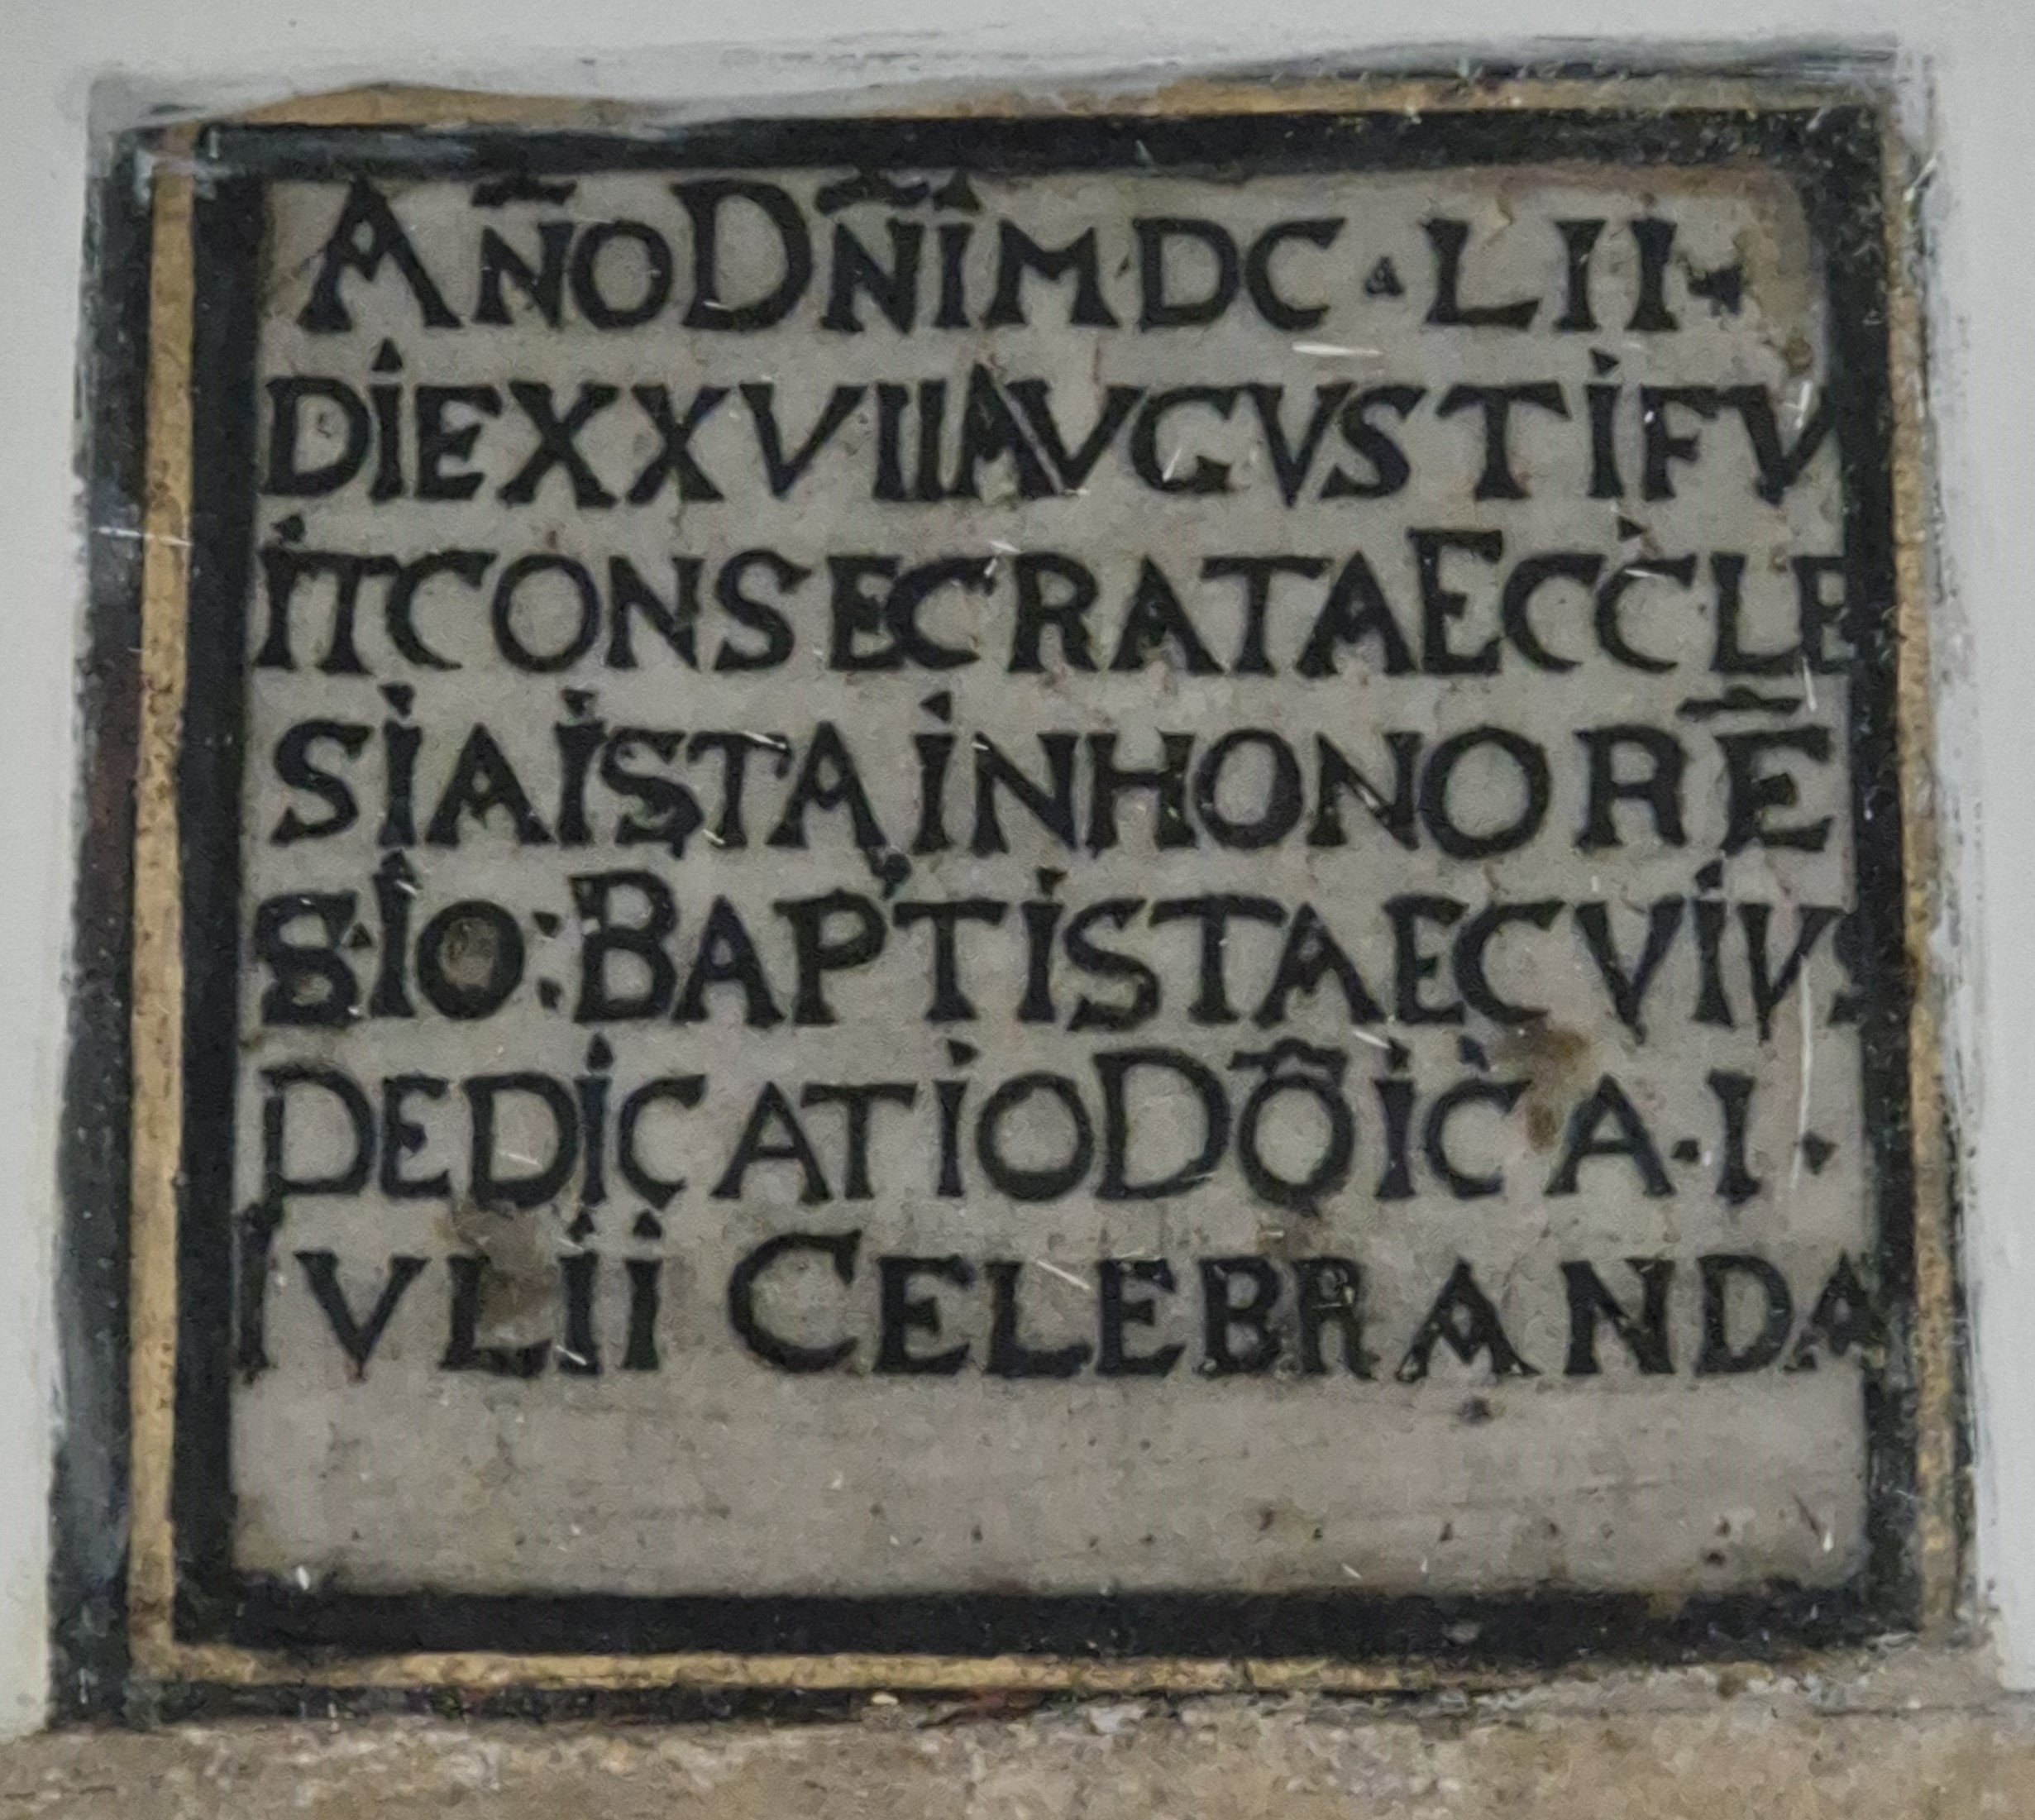 AÑO DÑI MDC · LII ·
DIE XXVII AVGVSTI FV
IT CONSECRATA ECCLE
SIA ISTA IN HONORĒ
S · IO : BAPTISTAE CVIVS
DEDICATIO DÕICA · I ·
IVLII CELEBRANDA